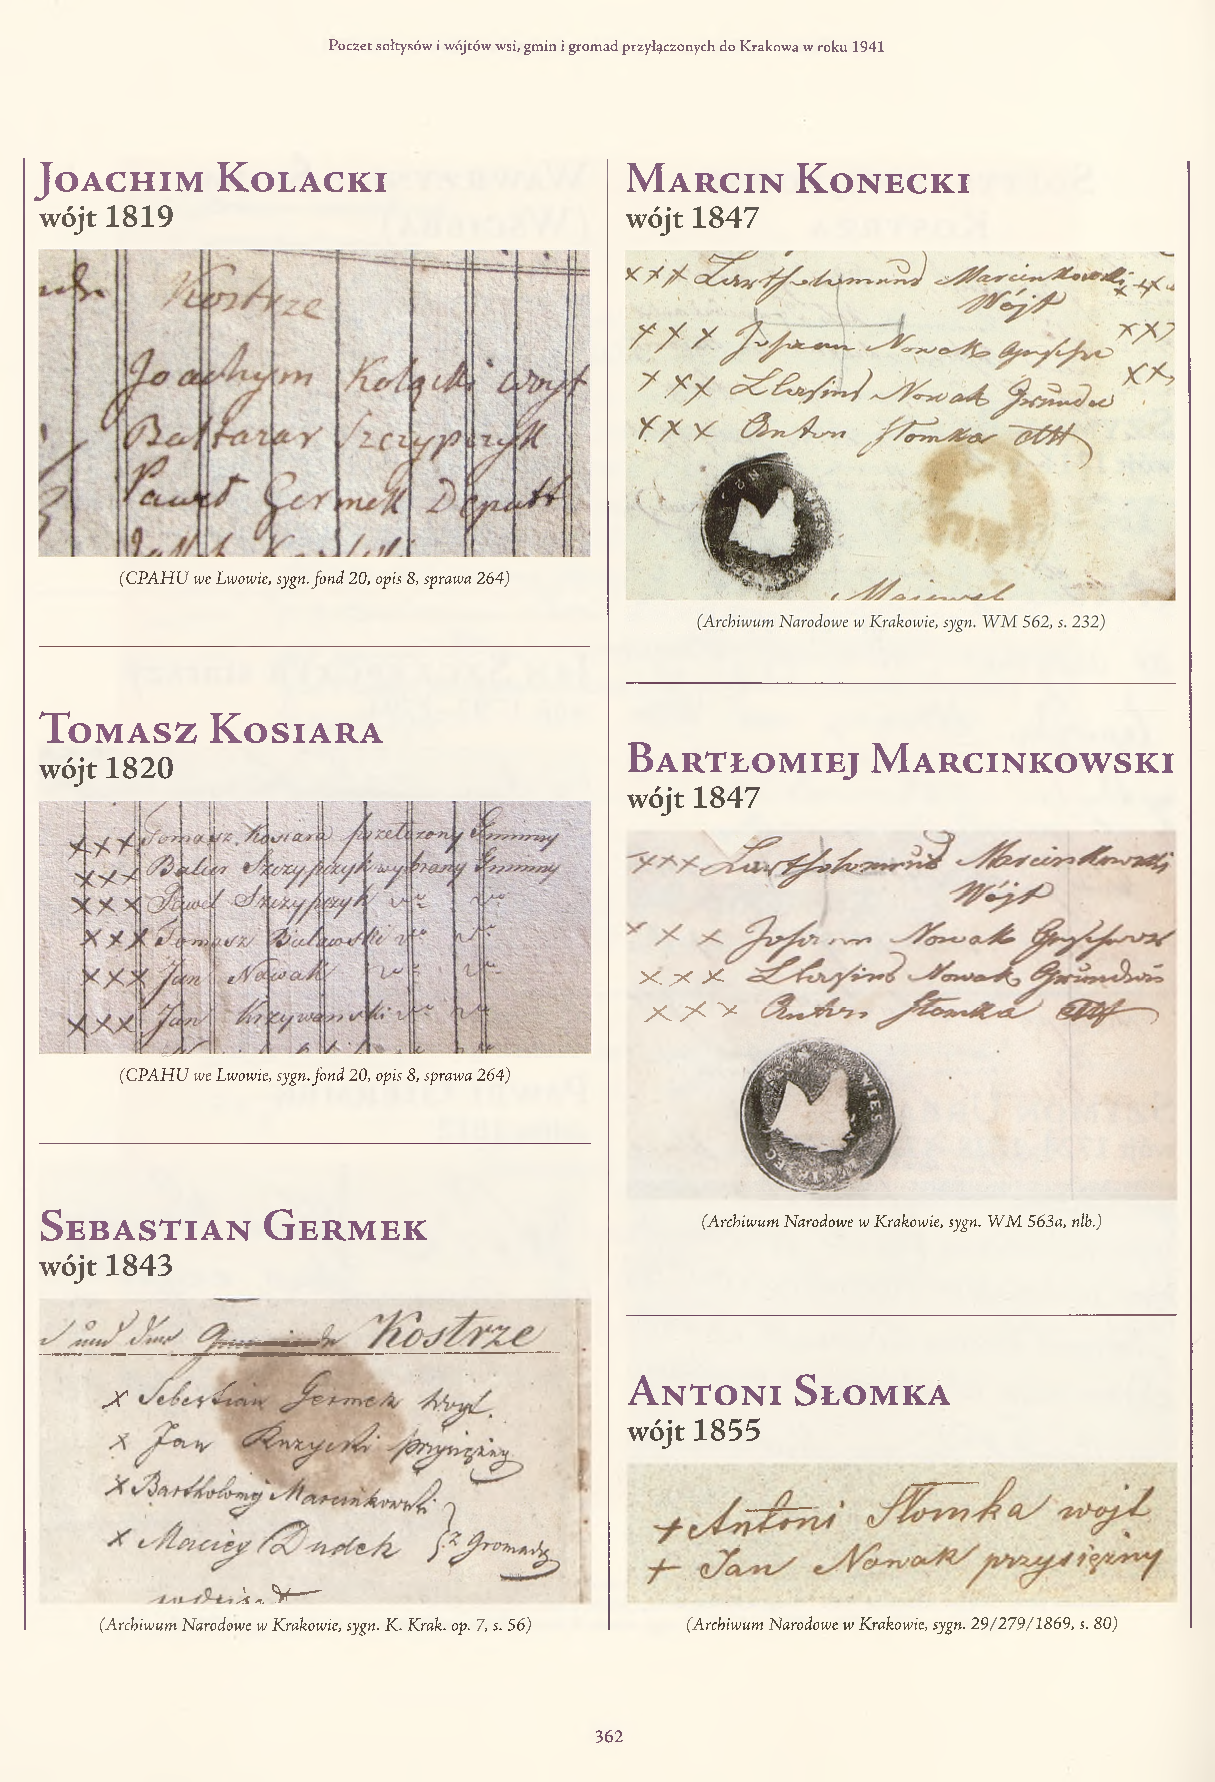 Poczet sołtysów i wójtów wsi, gmin i gromad przyłączonych do Krakowa w roku 1941
Joachim Kolacki
wójt 1819
Kostrze
Joachym Kolącki woyt
Baltazar Szczypczyk
Paweł Germek Deputt
(CPAHU we Lwowie, sygn. fond 20, opis 8, sprawa 264)
Tomasz Kosiara
wójt 1820
xxx Tomasz Kosiara przełożony Gminny
xxx Balcer Szczypczyk wybrany Gminny
xxx Paweł Szczypczyk
xxx Tomasz Bulawski
xxx Jan Nowak
xxx Jan Krzywanski
(CPAHU we Lwowie, sygn. fond 20, opis 8, sprawa 264)
Sebastian Germek
wójt 1843
und der Kostrze
x Sebestian Germek Woyt.
x Jan przysiężny
x Bartholomy Marcinkowski
x Maciey Dudek z Gromady
(Archiwum Narodowe w Krakowie, sygn. K. Krak. op. 7, s. 56)
Marcin Konecki
wójt 1847
xxx Marcinkowski
Wójt
xxx Johann Nowak
xxx Nowak
xxx Anton Słomka
(Archiwum Narodowe w Krakowie, sygn. WM 562, s. 232)
Bartłomiej Marcinkowski
wójt 1847
xxx Marcinkowski
Wójt
x x x Johann Nowak
x x x Nowak
x x x Anton Słomka
WIES
(Archiwum Narodowe w Krakowie, sygn. WM 563a, nlb.)
Antoni Słomka
wójt 1855
+ Antoni Słomka wojt
+ Jan Nowak przysiężny
(Archiwum Narodowe w Krakowie, sygn. 29/279/1869, s. 80)
362